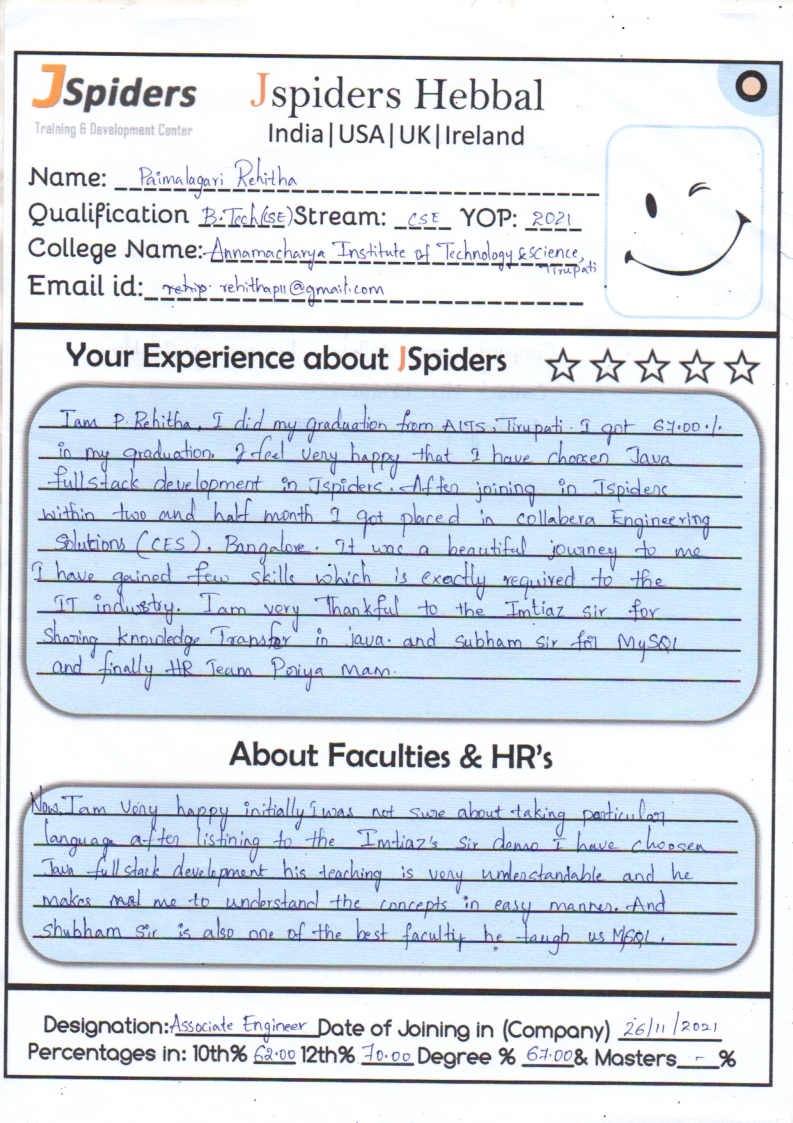 JSpiders
Training & Development Center
Jspiders Hebbal
India|USA|UK|Ireland
Name: Paimalagari Rehitha
Qualification B.Tech(CSE) Stream: CSE YOP: 2021
College Name: Annamacharya Institute of Technology & science,
Tirupati
Email id: rehip. rehithap11@gmail.com
Your Experience about JSpiders
I am P. Rehitha, I did my graduation from AITS, Tirupati. I got 67.00%
in my graduation. I feel very happy that I have choosen Java
fullstack development in Jspiders. After joining in Jspiders
within two and half month I got placed in collabera Engineering
Solutions (CES), Bangalore. It was a beautiful journey to me
I have gained few skills which is exactly required to the
IT industry. I am very Thankful to the Imtiaz sir for
sharing knowledge Transfer in java. and subham sir for MySQL
and finally HR Team Poriya Mam.
About Faculties & HR's
Now, I am very happy initially I was not sure about taking particular
language after listining to the Imtiaz's Sir demo I have choosen
Java fullstack development his teaching is very understandable and he
makes me to understand the concepts in easy manner. And
Shubham Sir is also one of the best faculty he taugh us MySQL.
Designation: Associate Engineer Date of Joining in (Company) 26/11/2021
Percentages in: 10th% 62.00 12th% 70.00 Degree % 67.00 & Masters - %